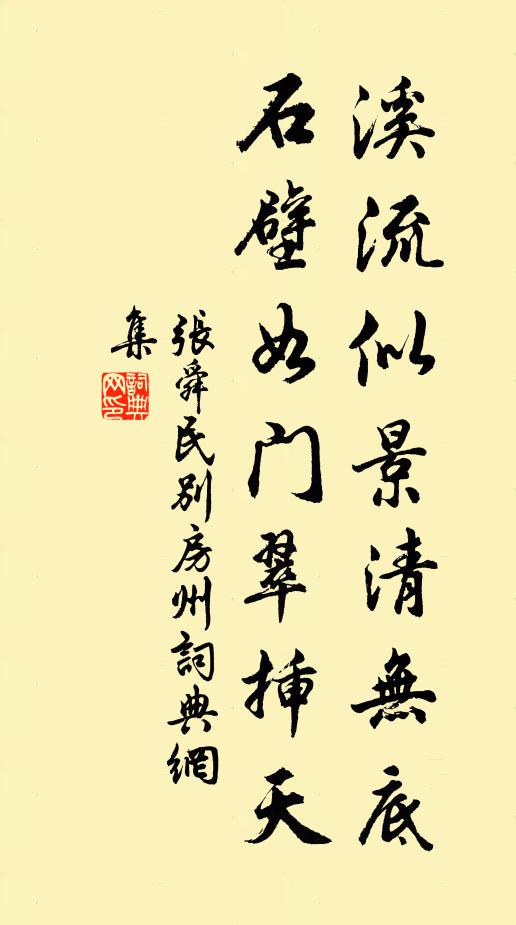 溪流似景清無底
石壁如門翠插天
張舜民別房州詞典網
集
詞典
网印